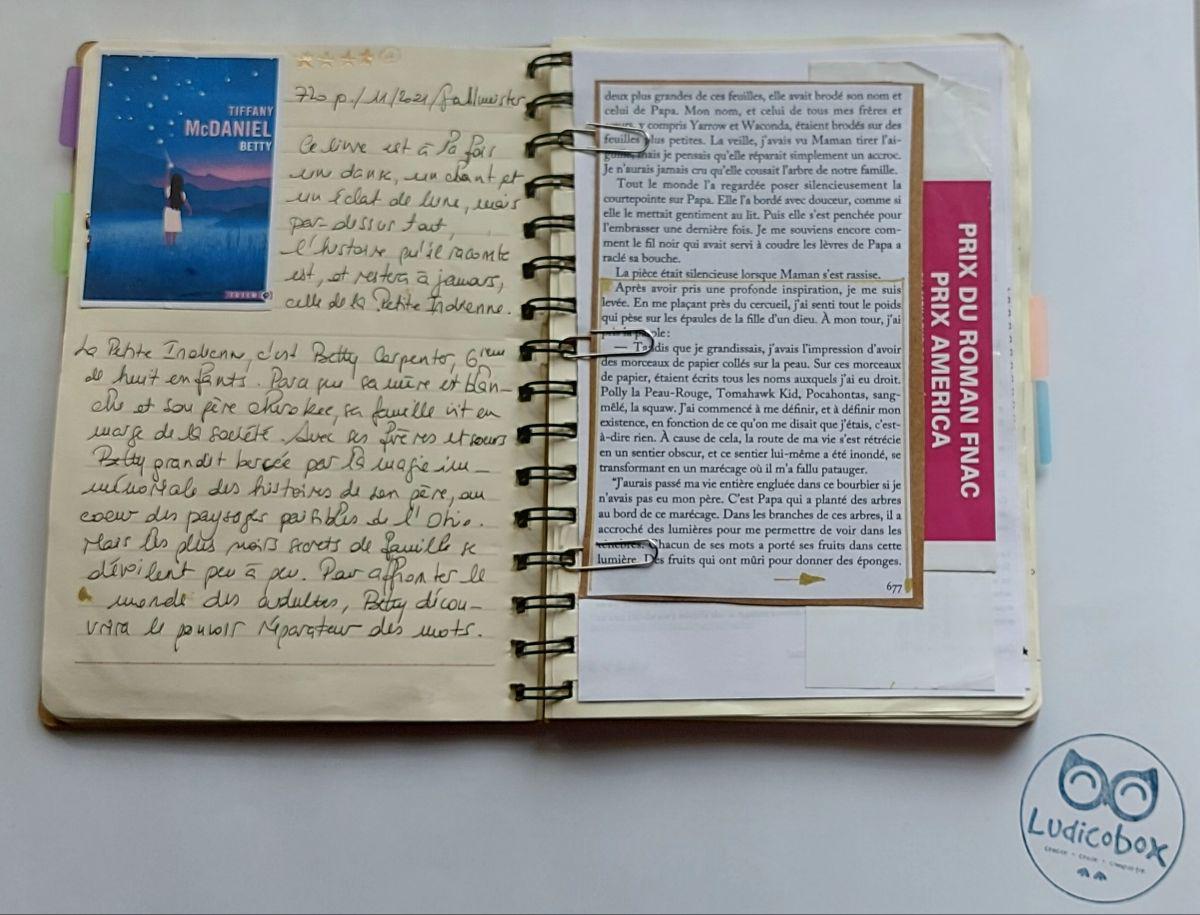 TIFFANY
McDANIEL
BETTY
TOTEM
720 p./11/2021/Gallmeister
Ce livre est à la fois
une danse, un chant et
un éclat de lune, mais
par-dessus tout,
l'histoire qu'il raconte
est, et restera à jamais,
celle de la Petite Indienne.
La Petite Indienne, c'est Betty Carpenter, 6ième
de huit enfants. Parce que sa mère est blan-
che et son père cherokee, sa famille vit en
marge de la société. Avec ses frères et soeurs
Betty grandit bercée par la magie im-
mémoriale des histoires de son père, au
coeur des paysages paisibles de l'Ohio.
Mais les plus noirs secrets de famille se
dévoilent peu à peu. Pour affronter le
monde des adultes, Betty décou-
vrira le pouvoir réparateur des mots.
deux plus grandes de ces feuilles, elle avait brodé son nom et
celui de Papa. Mon nom, et celui de tous mes frères et
y compris Yarrow et Waconda, étaient brodés sur des
feuilles plus petites. La veille, j'avais vu Maman tirer l'ai-
guille, mais je pensais qu'elle réparait simplement un accroc.
Je n'aurais jamais cru qu'elle cousait l'arbre de notre famille.
Tout le monde l'a regardée poser silencieusement la
courtepointe sur Papa. Elle l'a bordé avec douceur, comme si
elle le mettait gentiment au lit. Puis elle s'est penchée pour
l'embrasser une dernière fois. Je me souviens encore com-
ment le fil noir qui avait servi à coudre les lèvres de Papa a
raclé sa bouche.
La pièce était silencieuse lorsque Maman s'est rassise.
Après avoir pris une profonde inspiration, je me suis
levée. En me plaçant près du cercueil, j'ai senti tout le poids
qui pèse sur les épaules de la fille d'un dieu. À mon tour, j'ai
pris la parole :
— Tandis que je grandissais, j'avais l'impression d'avoir
des morceaux de papier collés sur la peau. Sur ces morceaux
de papier, étaient écrits tous les noms auxquels j'ai eu droit.
Polly la Peau-Rouge, Tomahawk Kid, Pocahontas, sang-
mêlé, la squaw. J'ai commencé à me définir, et à définir mon
existence, en fonction de ce qu'on me disait que j'étais, c'est-
à-dire rien. À cause de cela, la route de ma vie s'est rétrécie
en un sentier obscur, et ce sentier lui-même a été inondé, se
transformant en un marécage où il m'a fallu patauger.
"J'aurais passé ma vie entière engluée dans ce bourbier si je
n'avais pas eu mon père. C'est Papa qui a planté des arbres
au bord de ce marécage. Dans les branches de ces arbres, il a
accroché des lumières pour me permettre de voir dans les
ténèbres. Chacun de ses mots a porté ses fruits dans cette
lumière. Des fruits qui ont mûri pour donner des éponges.
677
PRIX DU ROMAN FNAC
PRIX AMERICA
LUDICOBOX